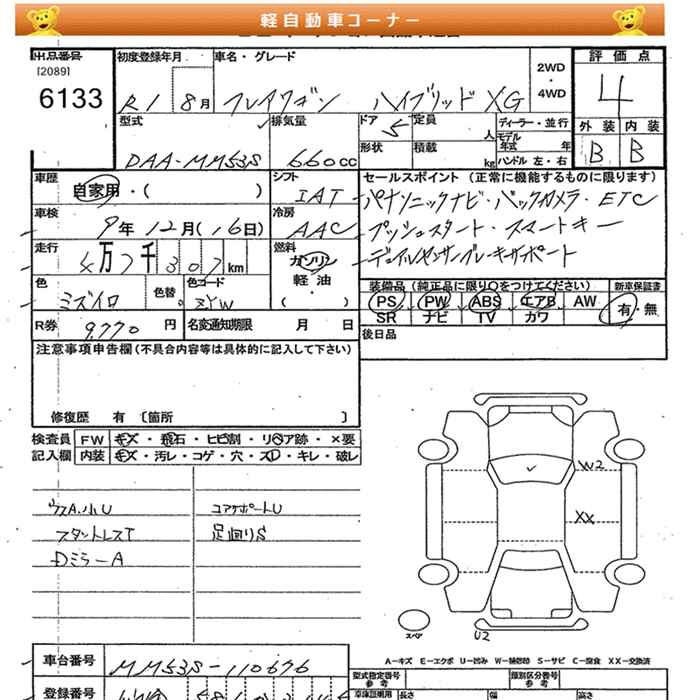 軽自動車コーナー
出品番号
[2089]
6133
初度登録年月
R1 8月
車名・グレード
フレアワゴン ハイブリッド XG
2WD
・
4WD
評価点
4
外装 内装
B B
型式
DAA-MM53S
排気量
660cc
ドア
5
定員
人
形状
積載
kg
ディーラー・並行
モデル年式
年
ハンドル 左・右
車歴
自家用・( )
シフト
IAT
車検
9年12月(16日)
冷房
AAC
走行
4万7千307km
燃料
ガソリン
軽油
・( )
色
ミズイロ
色替
色コード
ZYW
R券
9,770円
名変通知期限 月 日
セールスポイント (正常に機能するものに限ります)
パナソニックナビ・バックカメラ・ETC
プッシュスタート・スマートキー
デュアルセンサーブレーキサポート
装備品(純正品に限り○をつけてください)
PS PW ABS エアB AW
SR ナビ TV カワ
新車保証書
有・無
後日品
注意事項申告欄(不具合内容等は具体的に記入して下さい)
修復歴 有 〔箇所 〕
検査員記入欄
FW キズ・飛石・ヒビ割・リペア跡・×要
内装 キズ・汚レ・コゲ・穴・スレ・キレ・破レ
ウスA.小U
コアサポートU
スタットレスT
足回りS
Dミラ-A
W2
XX
スペア
U2
A-キズ E-エクボ U-凹み W-補修跡 S-サビ C-腐食 XX-交換済
車台番号
MM53S-110676
登録番号
型式指定番号
参考
類別区分番号
参考
車庫証明用
長さ
幅
高さ